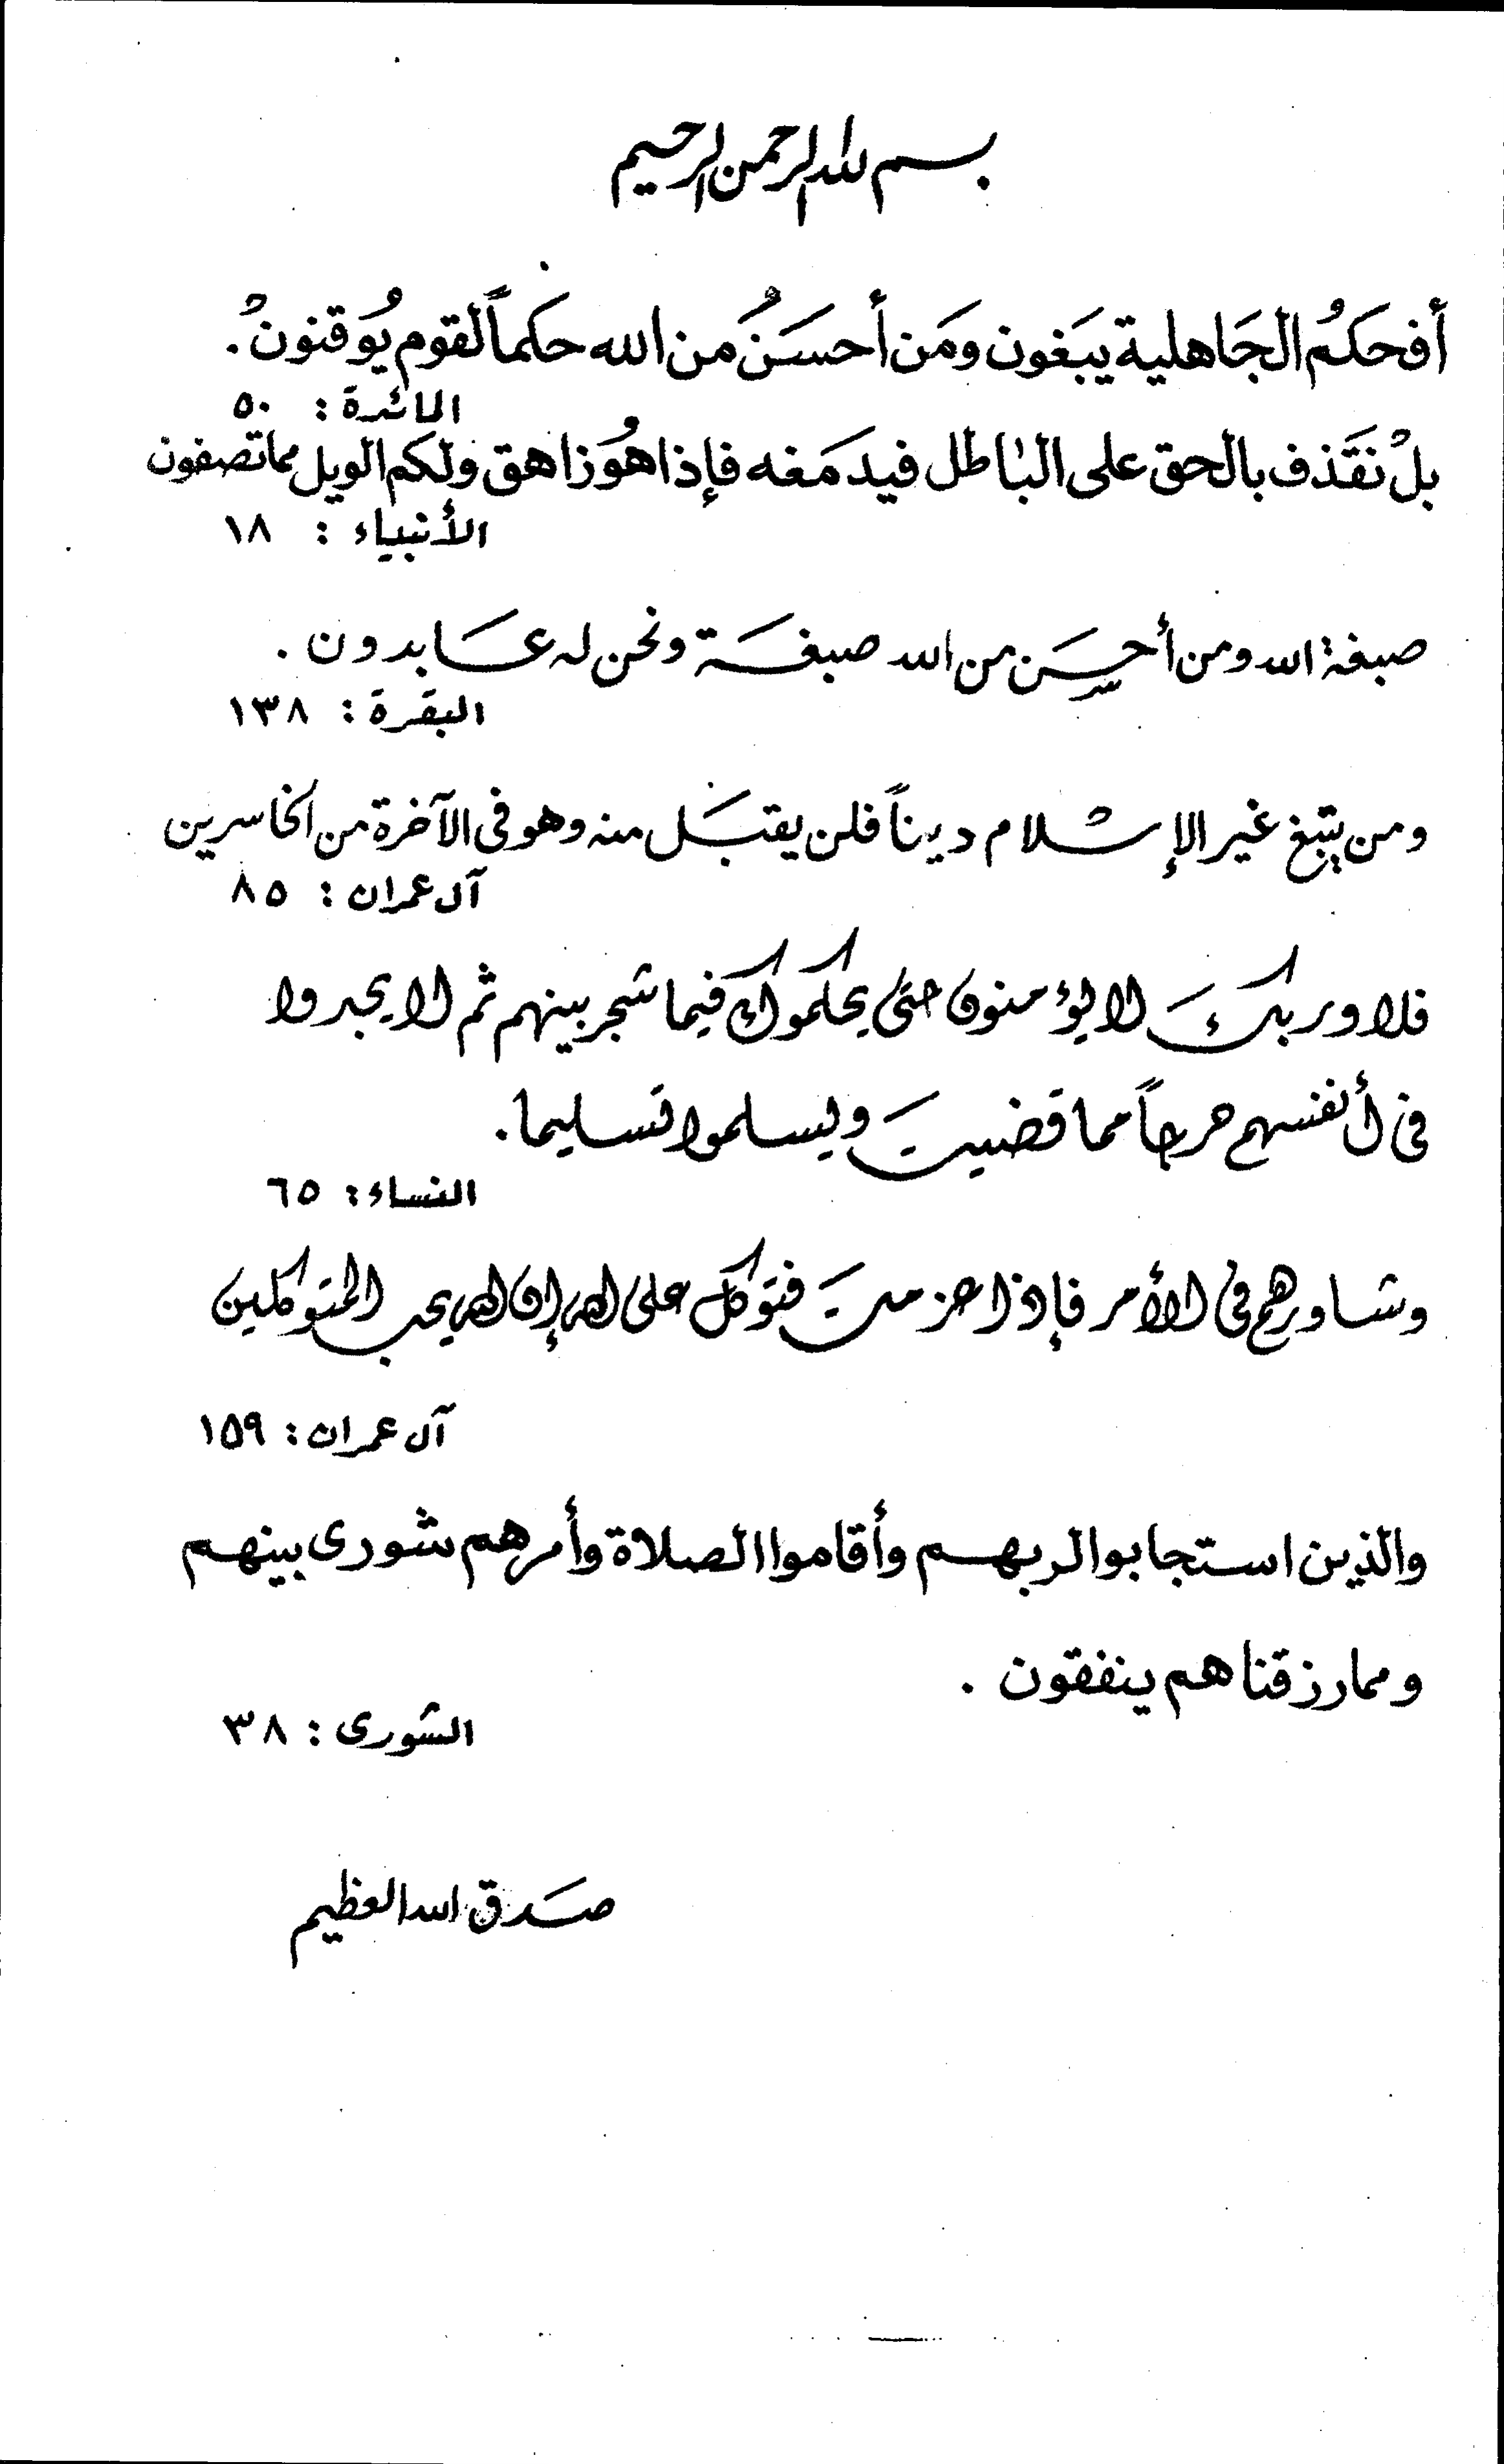 بسم الله الرحمن الرحيم
أفحكمُ الجَاهلية يبَغون ومَن أحسَنُ من الله حكماً لقوم يُوقنونْ.
المائدة : ٥٠
بلْ نقَذف بالحق على الباطل فيدمَغه فإذا هُوَ زاهق ولكم الويل مما تصفون
الأنبياء : ١٨
صبغة الله ومن أحسَن من الله صبغَة ونحن له عَابدون .
البقرة : ١٣٨
ومن يبتغ غير الإسلام ديناً فلن يقبَل منه وهو فى الآخرة من الخاسرين
آل عمران : ٨٥
فلا وربكَ لا يؤمنون حتى يحكموك فيما شجر بينهم ثم لا يجدوا
فى أنفسهم حرجاً مما قضيتَ ويسلموا تسليما .
النساء : ٦٥
وشاورهم فى الأمر فإذا عزمتَ فتوكل على الله إن الله يحب المتوكلين
آل عمران : ١٥٩
والذين استجابوا لربهم وأقاموا الصلاة وأمرهم شورى بينهم
ومما رزقناهم ينفقون .
الشورى : ٣٨
صَدق الله العظيم